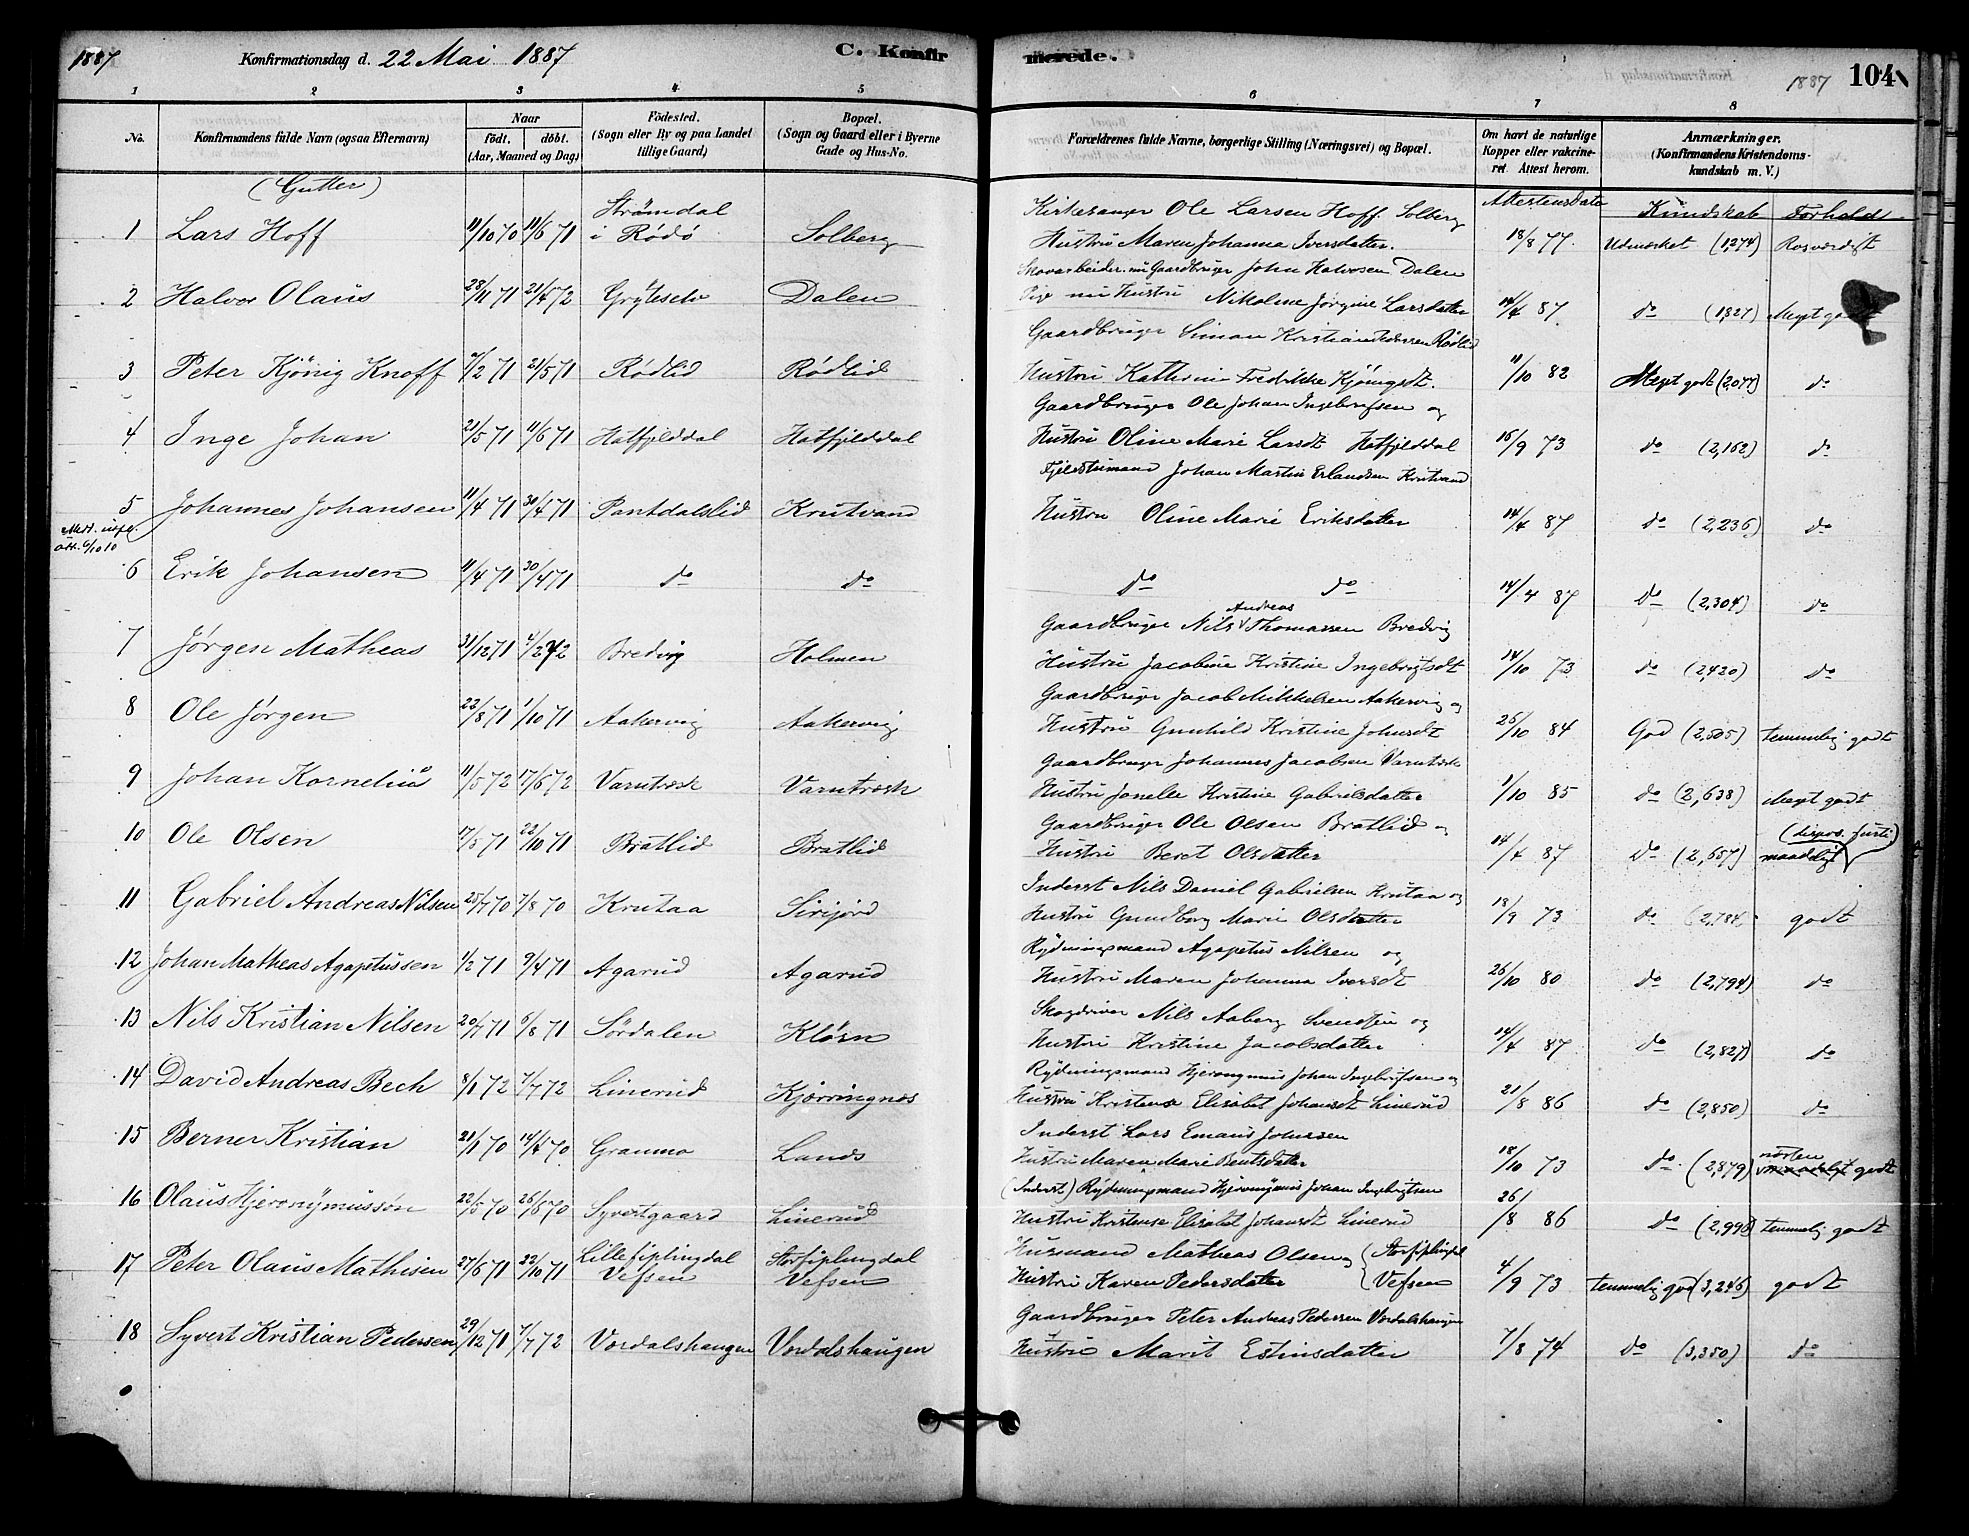 1887 Konfirmationsdag d. 22 Mai 1887 C. Konfirmerede. 1887 104
1 2 3 4 5 6 7 8
No. Konfirmandens fulde Navn (ogsaa Efternavn) Naar født. døbt. (Aar, Maaned og Dag) Fødested. (Sogn eller By og paa Landet tillige Gaard) Bopæl. (Sogn og Gaard eller i Byerne Gade og Hus-No. Forældrenes fulde Navne, borgerlige Stilling (Næringsvei) og Bopæl. Om havt de naturlige Kopper eller vakcineret. Attest herom. Anmærkninger. (Konfirmandens Kristendomskundskab m. V.)
(Gutter) Attestens dato Kundskab Forhold
Strömdal Kirkesanger Ole Larsen Hoff Solberg
1 Lars Hoff 11/10 70 11/6 71 i Rödö Solberg Hustru Maren Johanna Iversdatter. 18/8 77. Udmærket (1,274) Rosværdigt
Skovarbeider nu Gaardbruger John Halvorsen Dalen
2 Halvor Olaus 28/11 71 21/4 72 Gryteselv Dalen Pige nu Hustru Nikoline Jørgine Larsdatter 14/4 87 do (1,827) Meget godt
Gaardbruger Simon Kristian Pedersen Rödlid
3 Peter Kjönig Knoff 7/2 71 21/5 71 Rödlid Rödlid Hustru Kathrine Fredrikke Kjönigsdt. 11/10 82 Meget godt (2,077) do
Gaardbruger Ole Johan Ingebrigtsen og
4 Inge Johan 21/5 71 11/6 71 Hatfjelddal Hatfjelddal Hustru Oline Marie Larsdt Hatfjelddal 16/9 73 do (2,162) do
Fjeldstumand Johan Martin Erlandsen Krutvand
5 Johannes Johansen 11/4 71 30/4 71 Pantdalslid Krutvand Hustru Oline Marie Eriksdatter 14/4 87 do (2,236) do
Att. 6/10 10
6 Erik Johansen 11/4 71 30/4 71 do do do do 14/4 87 do (2,304) do
Gaardbruger Nils Andreas Thomassen Bredvig
7 Jørgen Matheas 31/12 71 4/2 72 Bredvig Holmen Hustru Jacobine Kristine Ingebrigtsdt 14/10 73 do (2,420) do
Gaardbruger Jacob Mikkelsen Aakervig og
8 Ole Jørgen 23/8 71 1/10 71 Aakervig Aakervig Hustru Gunhild Kristine Johnsdt 25/10 84 God (2,505) temmelig godt
Gaardbruger Johannes Jacobsen Varntræsk
9 Johan Kornelius 11/5 72 17/6 72 Varntræsk Varntræsk Hustru Janelle Kristine Gabrielsdatter 1/10 85 do (2,638) Meget godt
Gaardbruger Ole Olsen Bratlid og
10 Ole Olsen 17/5 71 22/10 71 Bratlid Bratlid Hustru Beret Olsdatter 14/4 87 do (2,657) maadeligt
Inderst Nils Daniel Gabrielsen Krutaa og
11 Gabriel Andreas Nilsen 25/7 70 7/8 70 Krutaa Sirijord Hustru Gundborg Marie Olsdatter 18/9 73 do (2,784 godt
Rydningsmand Agapetus Nilsen og
12 Johan Matheas Agapetussen 1/2 71 9/4 71 Agarud Agarud Hustru Maren Johanna Iversdt 26/10 80 do (2,794) do
Skogdriver Nils Aaberg Svendsen og
13 Nils Kristian Nilsen 20/7 71 6/8 71 Sördalen Kløsn Hustru Kristine Jacobsdatter 14/4 87 do (2,827) do
Rydningsmand Hjeronymus Johan Ingebrigtsen og
14 David Andreas Bech 8/1 72 7/7 72 Linerud Kjørringnes Hustru Kristense Elisabet Johansdt Linerud 21/8 86 do (2,850) do
Inderst Lars Emaus Johnsen
15 Berner Kristian 21/1 70 14/4 70 Granmo Lands Hustru Maren Marie Bentsdatter 18/10 73 do (2,879) næsten maadeligt godt
(Inderst) Rydningsmand Hjeronymus Johan Ingebrigtsen
16 Olaus Hjeronymussøn 22/5 70 26/6 70 Syvertgaard Linerud Hustru Kristense Elisabet Johansdt Linerud 26/8 86 do (2,998) temmelig godt
Lillefiplingdal Storfiplingdal Husmand Mathias Olsen og Storfiplingdal
17 Peter Olaus Mathisen 27/6 71 22/10 71 Vefsen Vefsen Hustru Karen Pedersdatter Vefsen 4/9 73 temmelig god (3,246) godt
Gaardbruger Peter Andreas Pedersen Vordalshaugen
18 Syvert Kristian Pedersen 29/12 71 7/7 72 Vordalshaugen Vordalshaugen Hustru Marit Estinsdatter 7/8 74 do (3,350) do